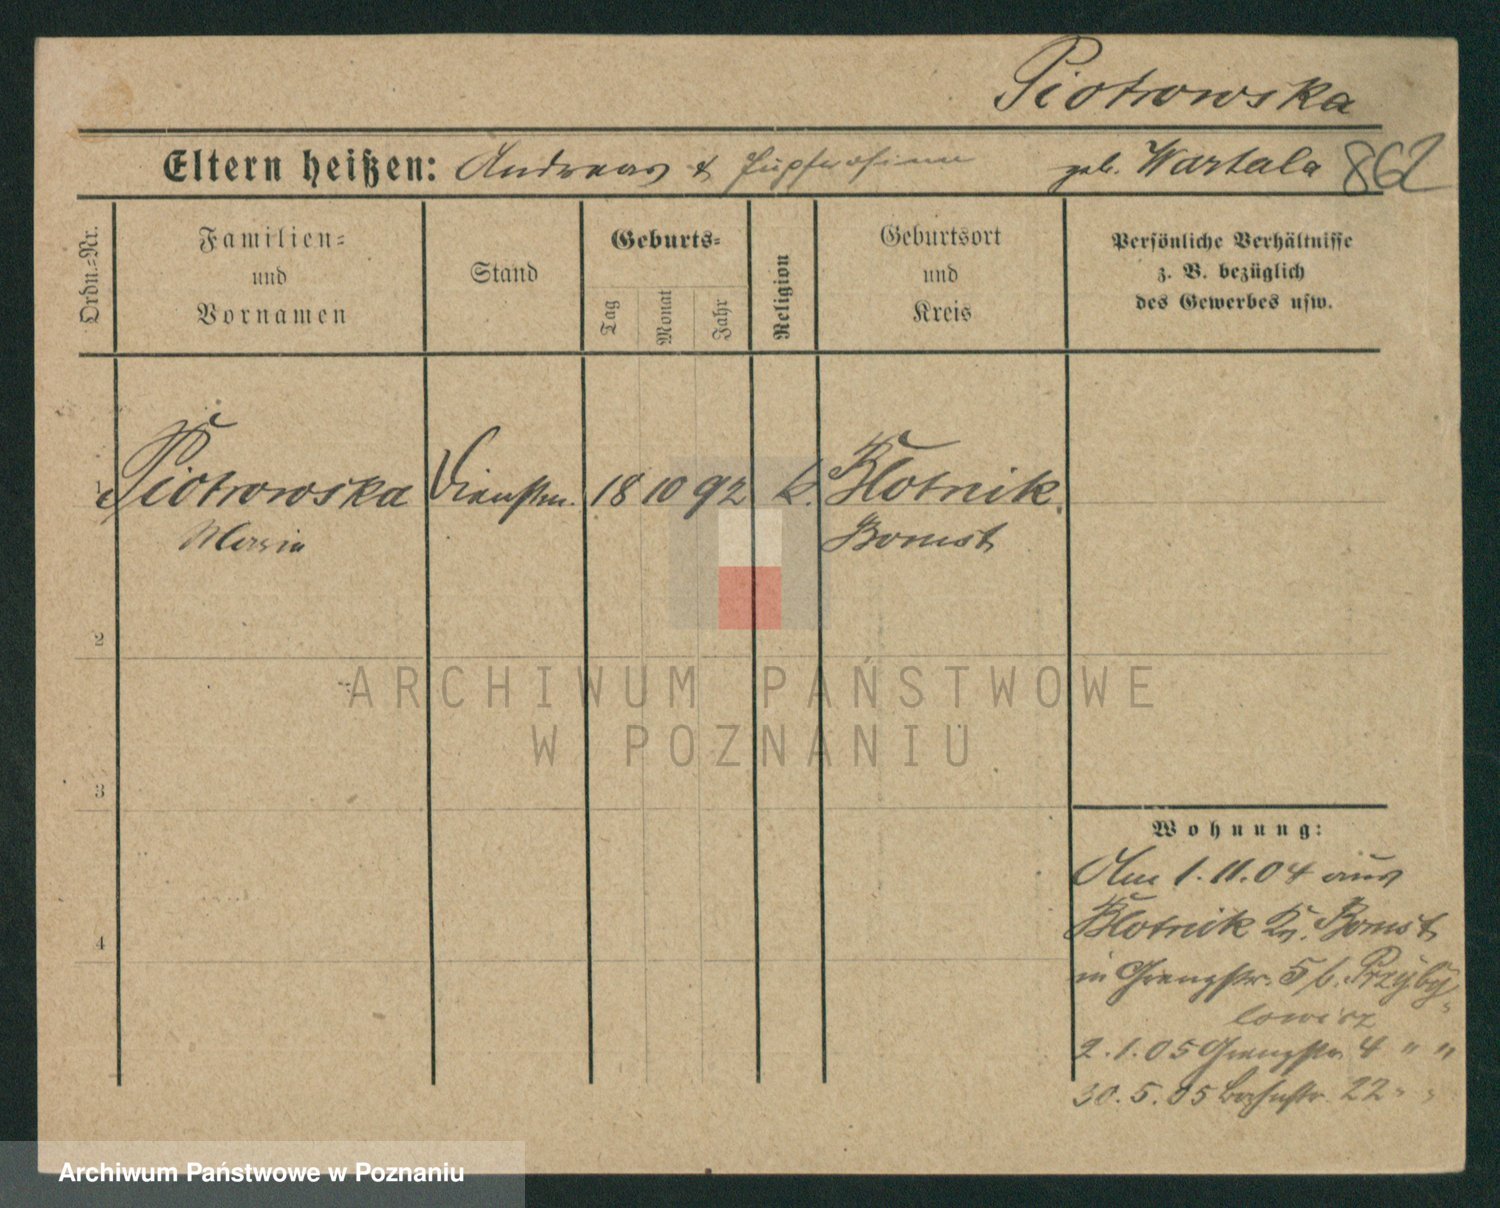 Piotrowska
Eltern heißen: Andreas & geb. Wartala 862
Ordn.-Nr.
Familien-
und
Vornamen
Stand
Geburts-
Tag
Monat
Jahr
Religion
Geburtsort
und
Kreis
Persönliche Verhältnisse
z. B. bezüglich
des Gewerbes usw.
1 Piotrowska Dienstm. 18 10 92 k. Klotnik
Maria Bomst
2
ARCHIWUM PAŃSTWOWE
W POZNANIU
3
Wohnung:
Am 1.11.04 aus
Klotnik Kr. Bomst
4
in Grenzstr. 5 b. Przyby-
lowicz
2.1.05 Grenzstr. 4 " "
30.5.05 Bahnstr. 22 " "
Archiwum Państwowe w Poznaniu